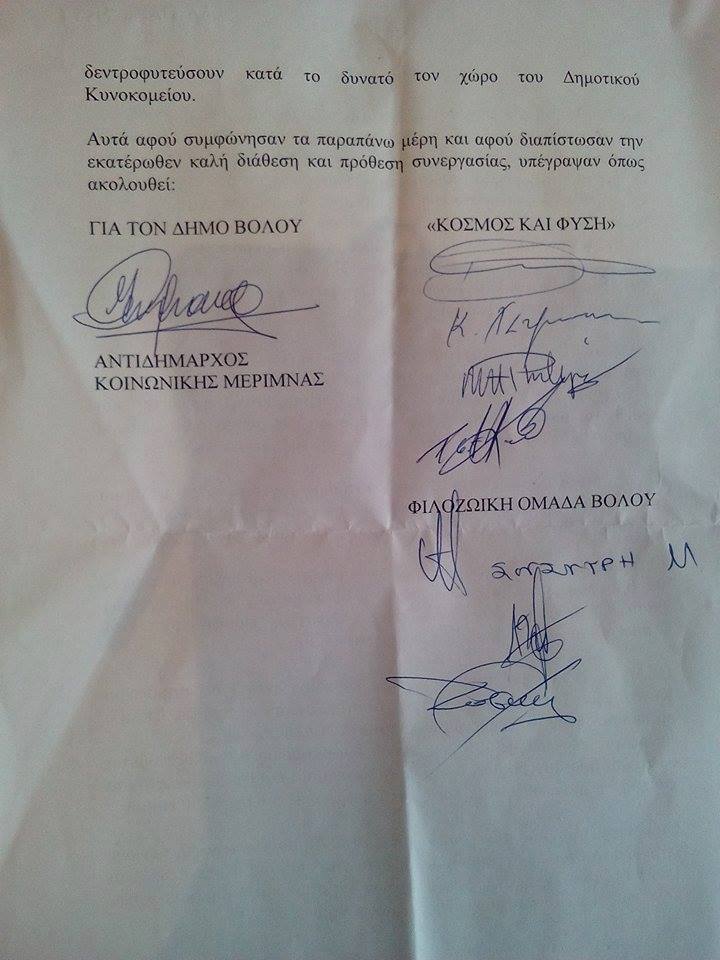 δεντροφυτεύσουν κατά το δυνατό τον χώρο του Δημοτικού
Κυνοκομείου.
Αυτά αφού συμφώνησαν τα παραπάνω μέρη και αφού διαπίστωσαν την
εκατέρωθεν καλή διάθεση και πρόθεση συνεργασίας, υπέγραψαν όπως
ακολουθεί:
ΓΙΑ ΤΟΝ ΔΗΜΟ ΒΟΛΟΥ
«ΚΟΣΜΟΣ ΚΑΙ ΦΥΣΗ»
Κ.
ΑΝΤΙΔΗΜΑΡΧΟΣ
ΚΟΙΝΩΝΙΚΗΣ ΜΕΡΙΜΝΑΣ
ΦΙΛΟΖΩΙΚΗ ΟΜΑΔΑ ΒΟΛΟΥ
Μ